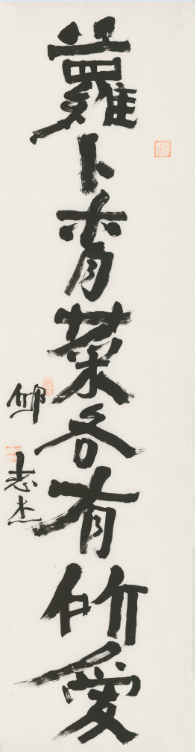 蘿卜青菜各有所愛
邱志杰